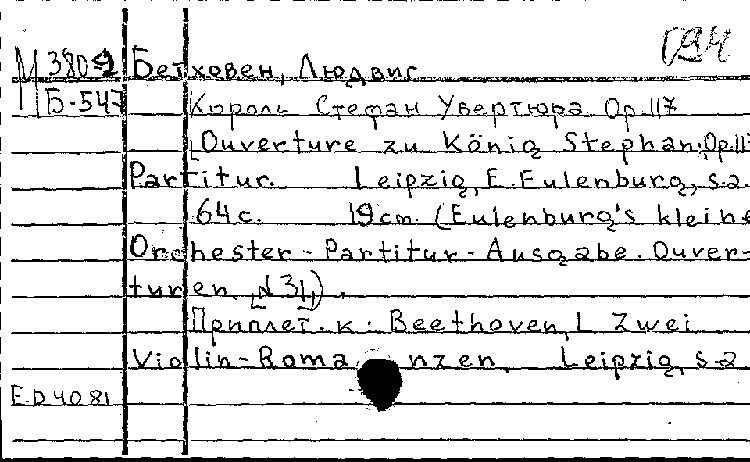 М 380 Бетховен, Людвиг
Б-547 Король Стефан Увертюра Op.117
[Ouverture zu König Stephan; Op.11
Partitur. Leipzig, E. Eulenburg, s.a.
64 с. 19 cm. (Eulenburg's kleine
Orchester-Partitur-Ausgabe. Ouver-
turen
Приплет. к: Beethoven, L Zwei
Violin-Romanzen. Leipzig, s-a
ED 4081